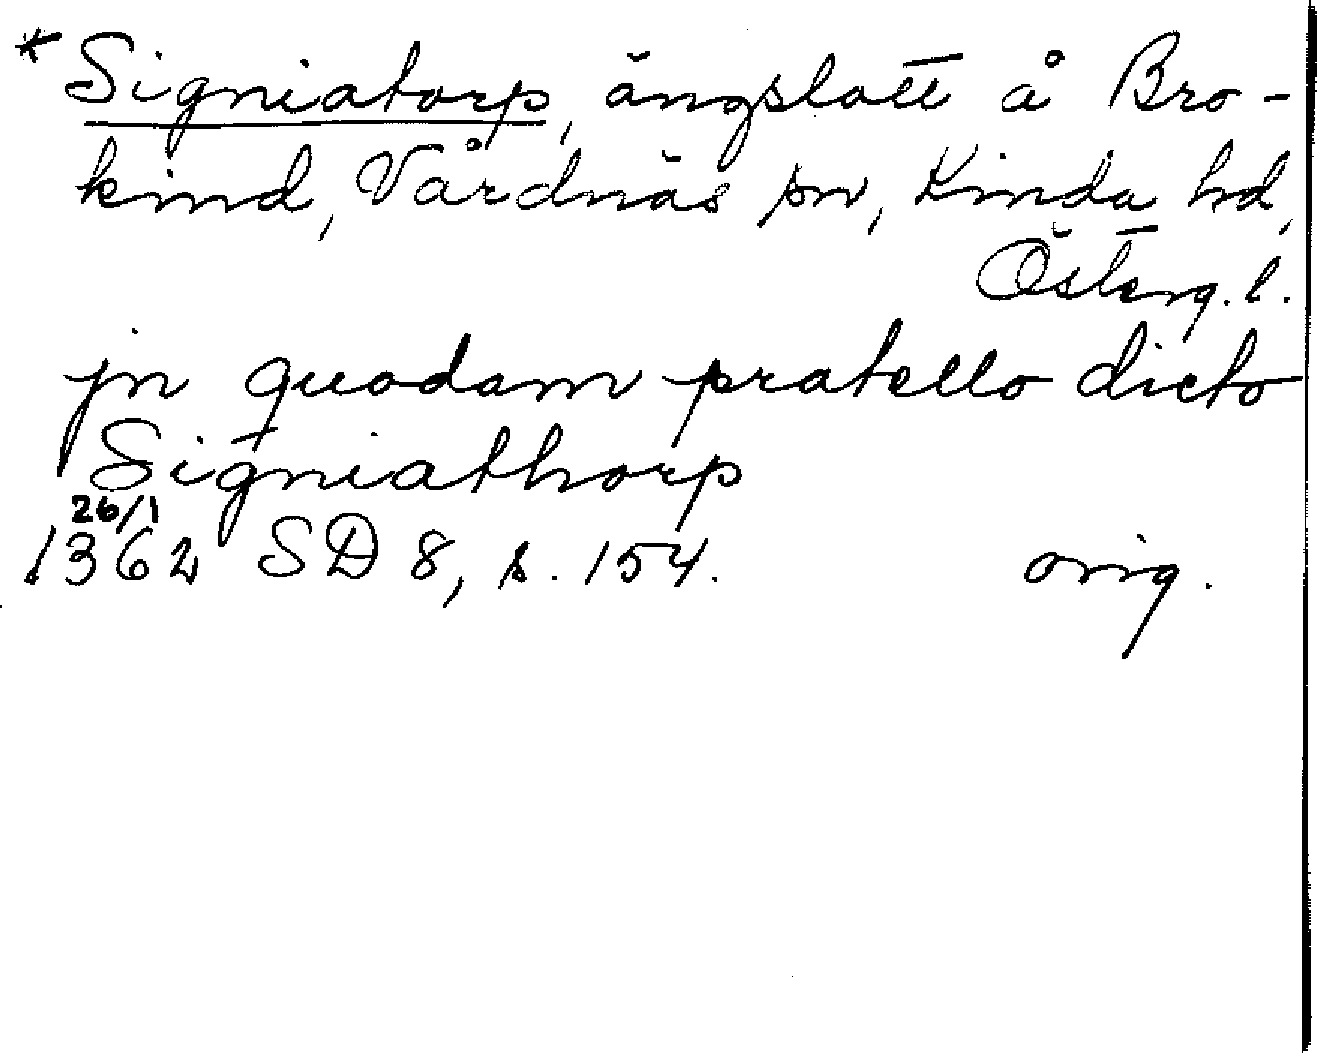 *Signiatorp, ängslott å Bro-
kind, Vårdnäs sn, Kinda hd,
Österg. l.
jn quodam pratello dicto
Signiathorp
26/1
1362 SD 8, s. 154. orig.